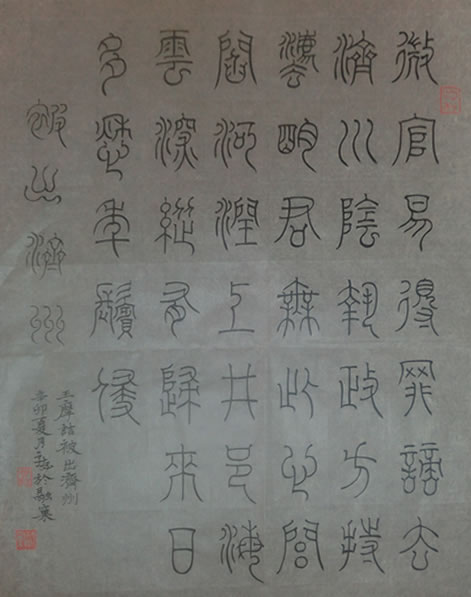 微官易得罪謫去
濟川陰執政方持
灋明君無此心閭
閻河潤上井邑海
雲深縱有歸來日
多愁年鬢侵
被出濟州
王摩詰被出濟州
辛卯夏月於